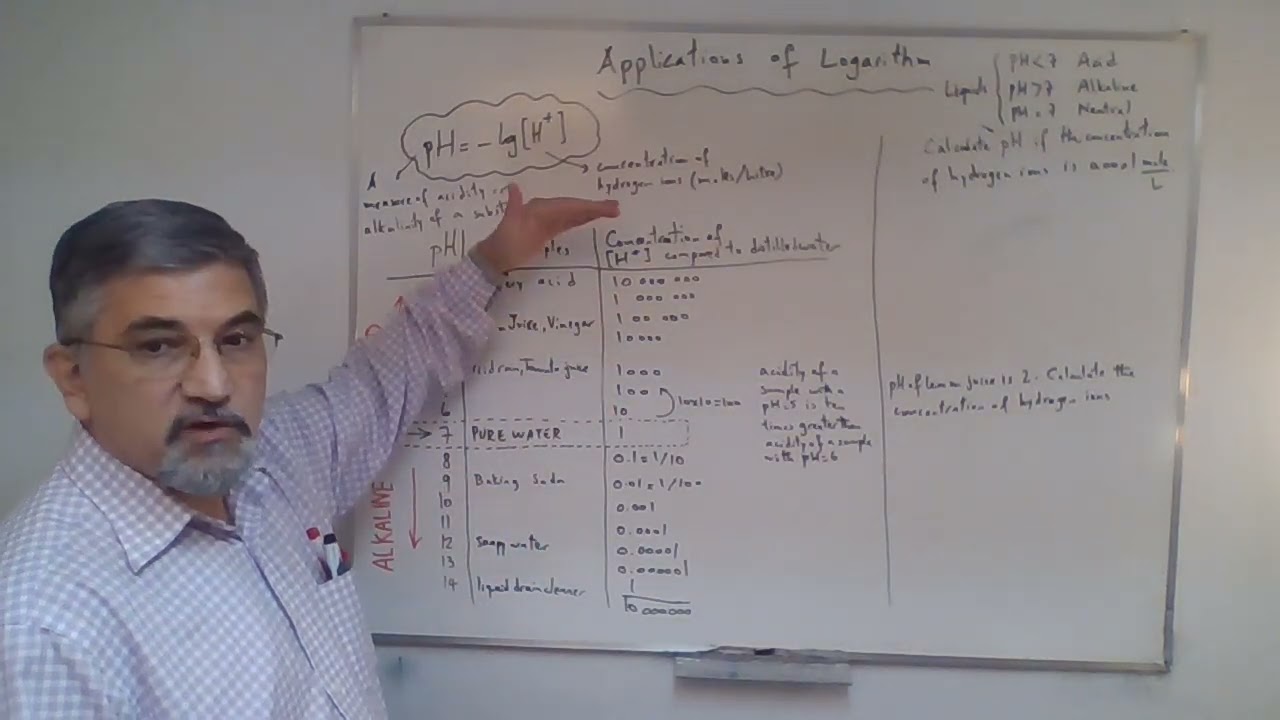 Applications of Logarithm
Liquids
pH<7 Acid
pH>7 Alkaline
pH=7 Neutral
pH=-lg[H⁺]
concentration of
hydrogen ions (moles/Litre)
A
measure of acidity
alkalinity of a
Calculate pH if the concentration
of hydrogen ions is 0.0001 mole/L
pH
Concentration of
[H⁺] compared to distilled water
acid 10 000 000
1 000 000
Juice, Vinegar 1 00 000
10000
rain, Tomato juice 1000
100
6 10
10x10=100
→ 7 PURE WATER 1
8 0.1=1/10
9 Baking Soda 0.01=1/100
10 0.001
11 0.0001
12 soapy water 0.00001
13 0.000001
14 liquid drain cleaner 1/10 000000
ALKALINE
acidity of a
sample with a
pH=5 is ten
times greater than
acidity of a sample
with pH=6
pH of lemon juice is 2. Calculate the
concentration of hydrogen ions